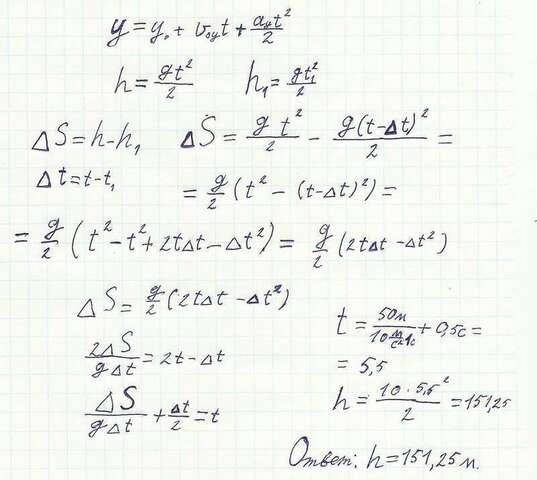 y = y₀ + v₀yt + ayt²/2
h = gt²/2    h₁ = gt₁²/2
ΔS = h - h₁    ΔS = g t²/2 - g(t-Δt)²/2 =
Δt = t - t₁    = g/2 (t² - (t-Δt)²) =
= g/2 (t² - t² + 2tΔt - Δt²) = g/2 (2tΔt - Δt²)
ΔS = g/2 (2tΔt - Δt²)
2ΔS/gΔt = 2t - Δt
ΔS/gΔt + Δt/2 = t
t = 50м/10 м/с² 1с + 0,5с =
= 5,5
h = 10 · 5,5²/2 = 151,25
Ответ: h = 151,25 м.